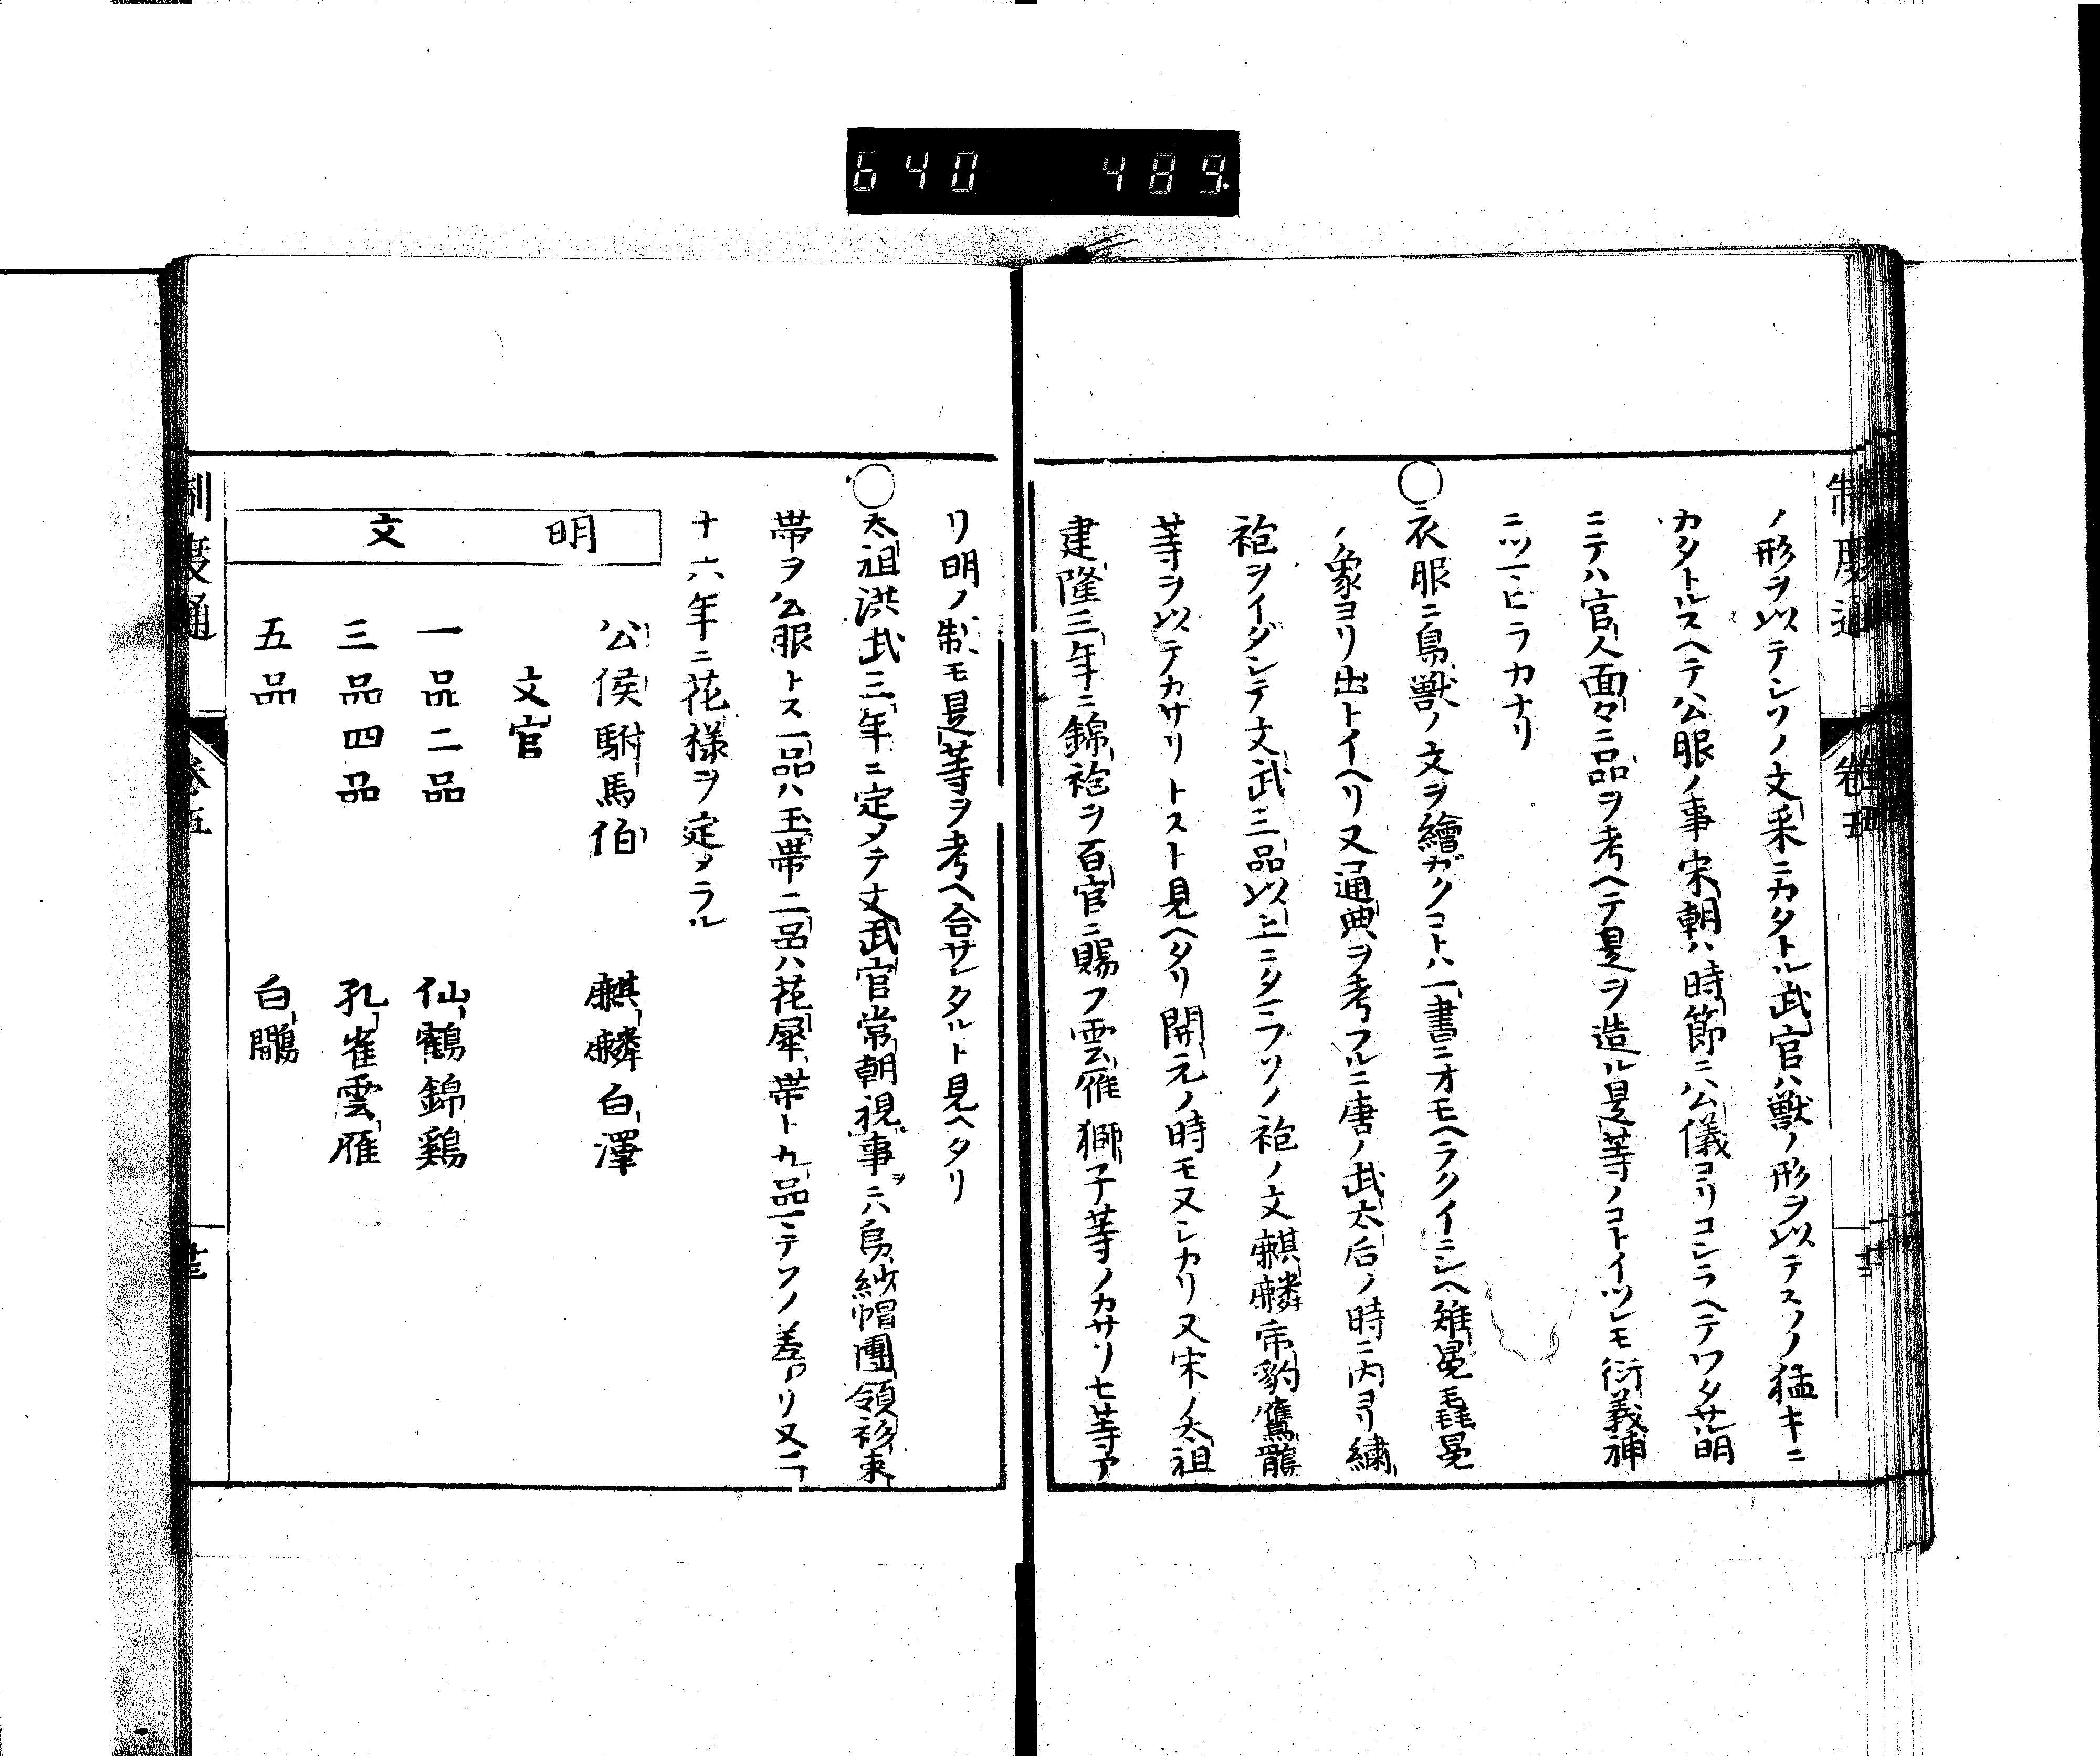 640 489
制度通 卷五
ノ形ヲ以テシソノ文采ニカタトル武官ハ獣ノ形ヲ以テスソノ猛キニ
カタトルスヘテ公服ノ事宋朝ハ時節ニ公儀ヨリコシラヘテワタサル明
ニテハ官人面々ニ品ヲ考ヘテ是ヲ造ル是等ノコトイツレモ衍義補
ニツマヒラカナリ
○衣服ニ鳥獣ノ文ヲ繪ガクコトハ一書ニオモヘラクイニシヘ雉冕毳冕
ノ象ヨリ出トイヘリ又通典ヲ考フルニ唐ノ武太后ノ時ニ内ヨリ繍
袍ヲイダシテ文武三品以上ニタマフソノ袍ノ文麒麟帍豹鷹鶻
等ヲ以テカサリトスト見ヘタリ開元ノ時モ又シカリ又宋ノ太祖
建隆三年ニ錦袍ヲ百官ニ賜フ雲雁獅子等ノカサリ七等ア
リ明ノ制モ是等ヲ考ヘ合サレタルト見ヘタリ
○太祖洪武三年ニ定メテ文武官常朝視事ニハ烏紗帽團領衫束
帯ヲ公服トス一品ハ玉帯二品ハ花犀帯ト九品マテソノ差アリ又二
十六年ニ花様ヲ定メラル
明 文
公侯駙馬伯 麒麟白澤
文官
一品二品 仙鶴錦鷄
三品四品 孔雀雲雁
五品 白鷴
制度通 卷五